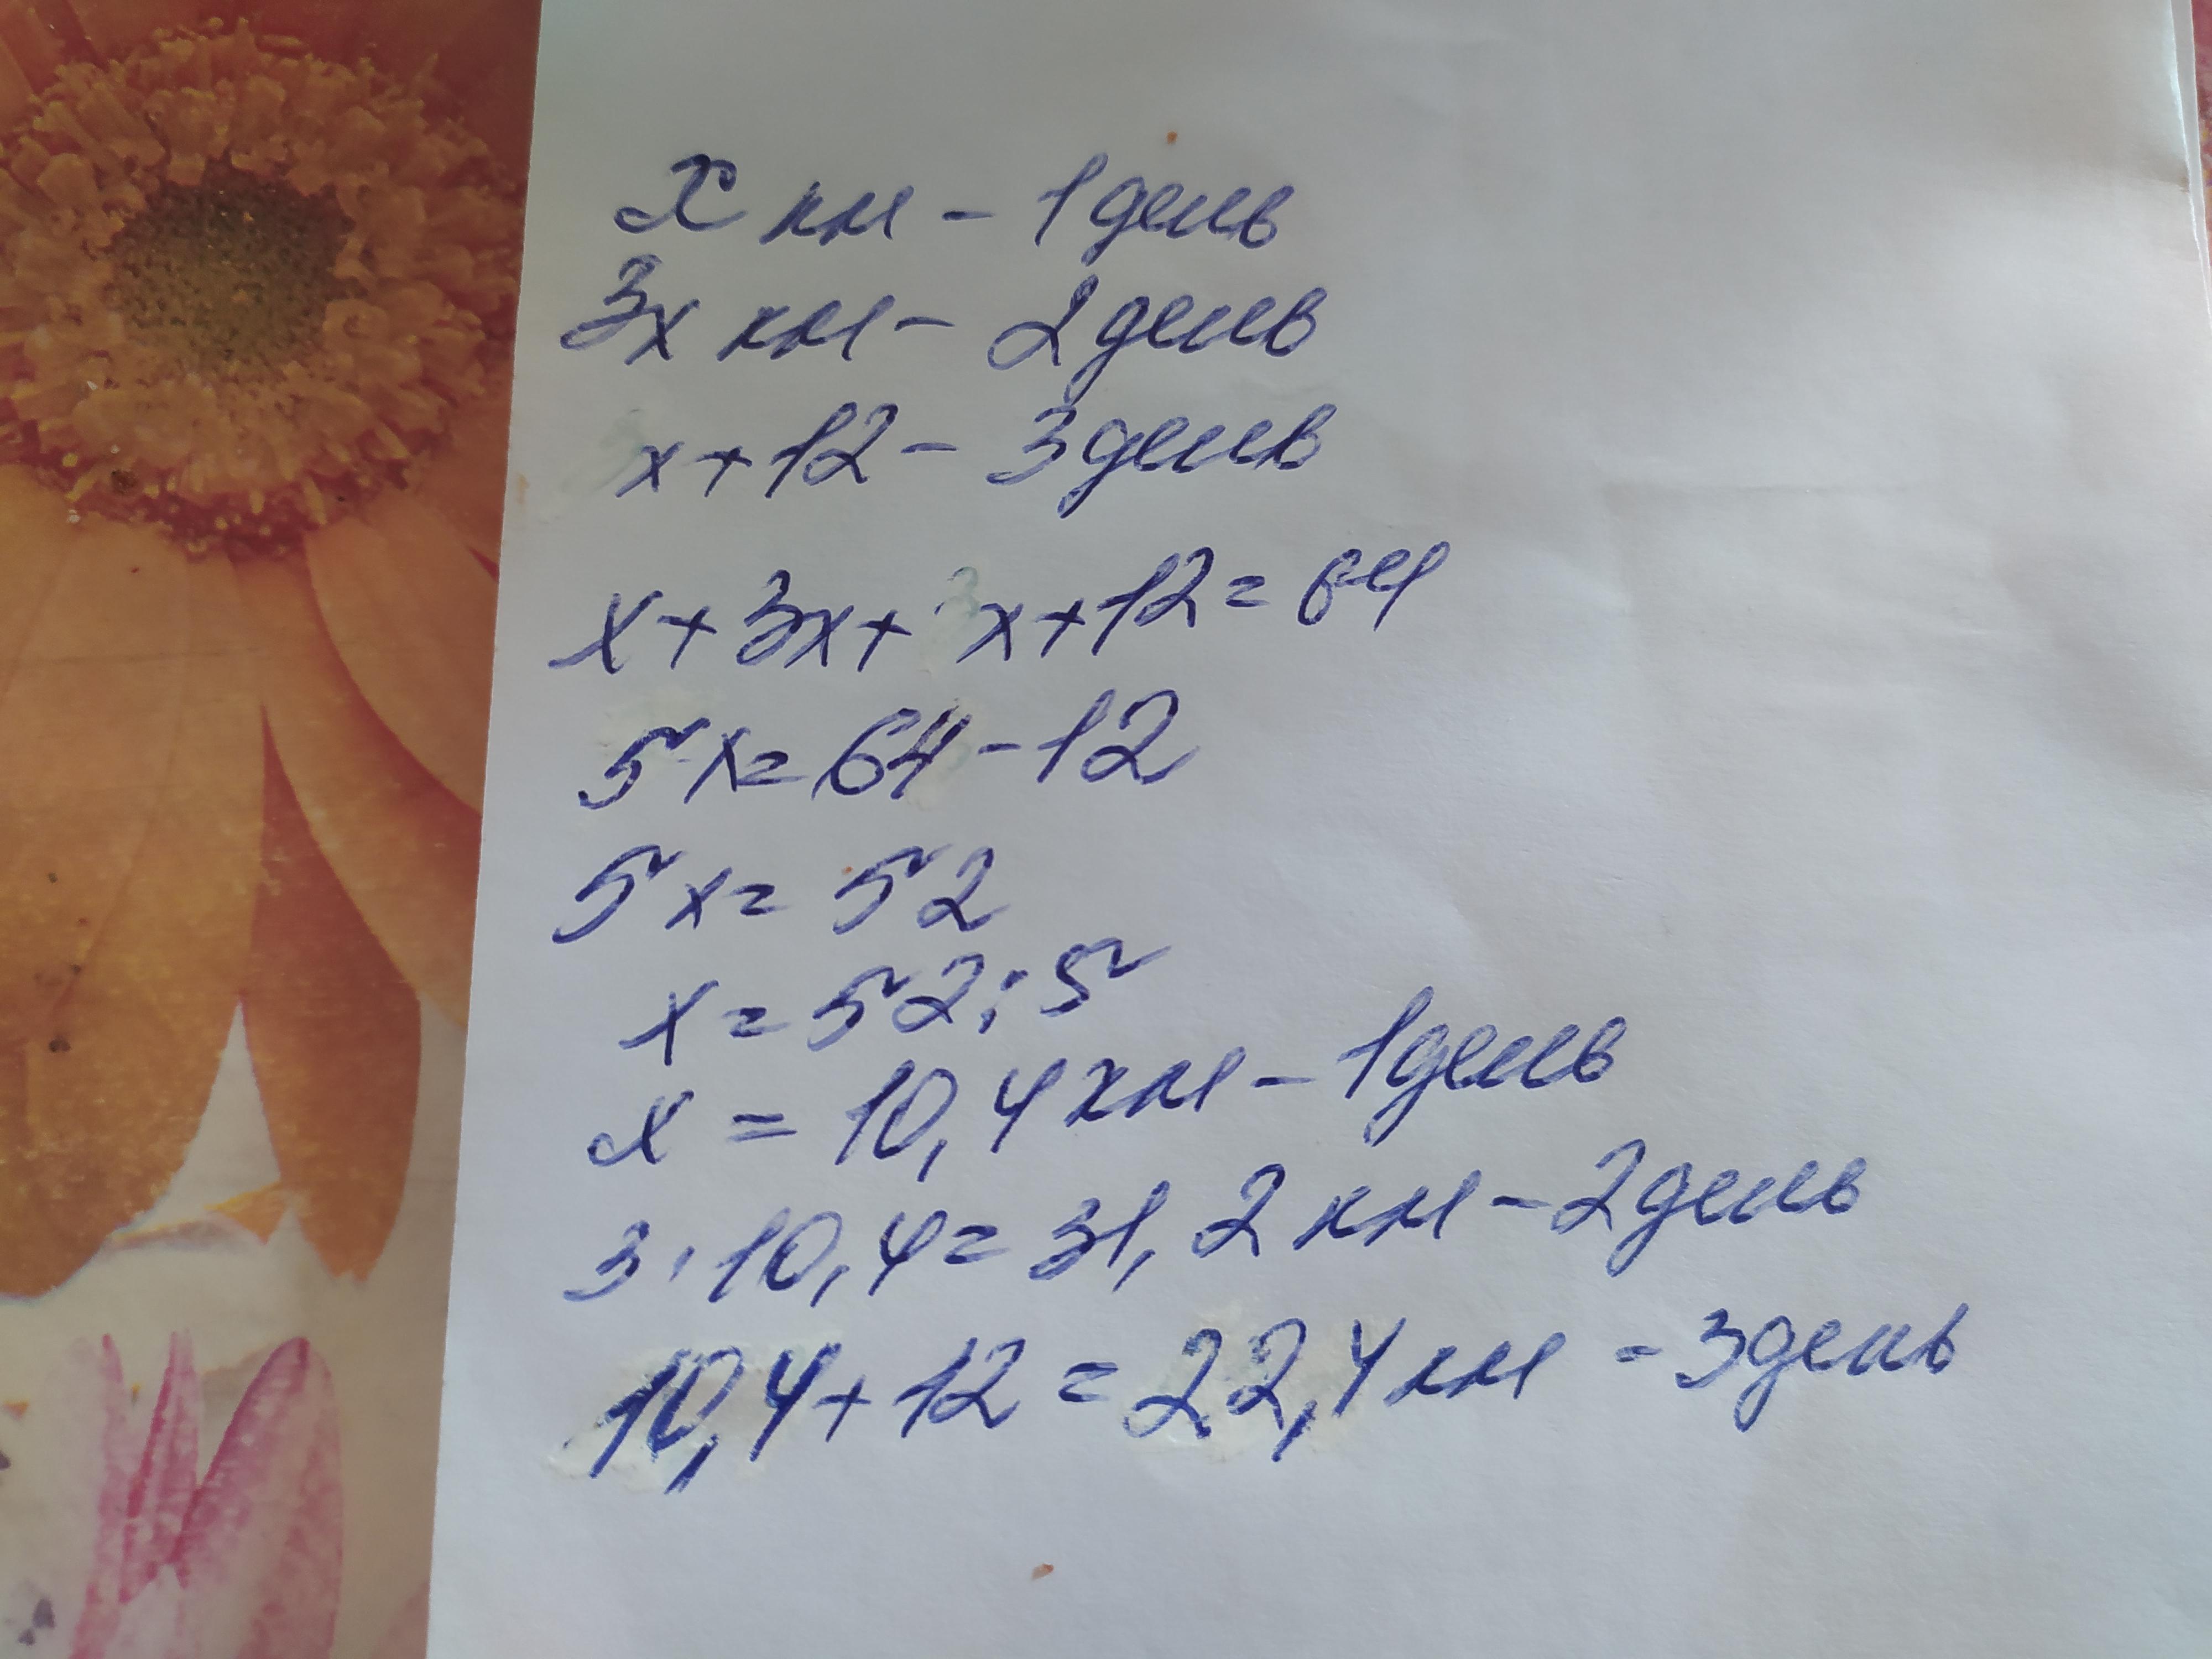 x км - 1 день
3x км - 2 день
x+12 - 3 день
x+3x+x+12=64
5x=64-12
5x=52
x=52:5
x=10,4 км - 1 день
3·10,4=31,2 км - 2 день
10,4+12=22,4 км - 3 день